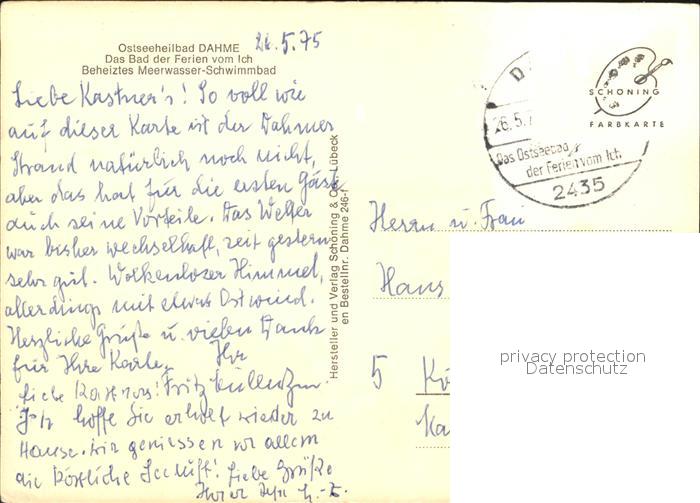 Ostseeheilbad DAHME
Das Bad der Ferien vom Ich
Beheiztes Meerwasser-Schwimmbad
26.5.75
Liebe Kastner's! So voll wie
auf dieser Karte ist der Dahmer
Strand natürlich noch nicht,
aber das hat für die ersten Gäste
auch seine Vorteile. Das Wetter
war bisher wechselhaft, seit gestern
sehr gut. Wolkenloser Himmel,
allerdings mit etwas Ostwind.
Herzliche Grüße u. vielen Dank
für Ihre Karte, Ihr
Liebe Fritz
Ich hoffe Sie erholt wieder zu
Hause. Wir geniessen vor allem
die köstliche Seeluft! Liebe Grüße
Ihre
Hersteller und Verlag Schöning & Co., Lübeck
en Bestellnr. Dahme 246-f
D
26.5.7
Das Ostseebad
der Ferien vom Ich
2435
SCHÖNING
FARBKARTE
Herrn u. Frau
Hans
5 Kö
Ka
privacy protection
Datenschutz